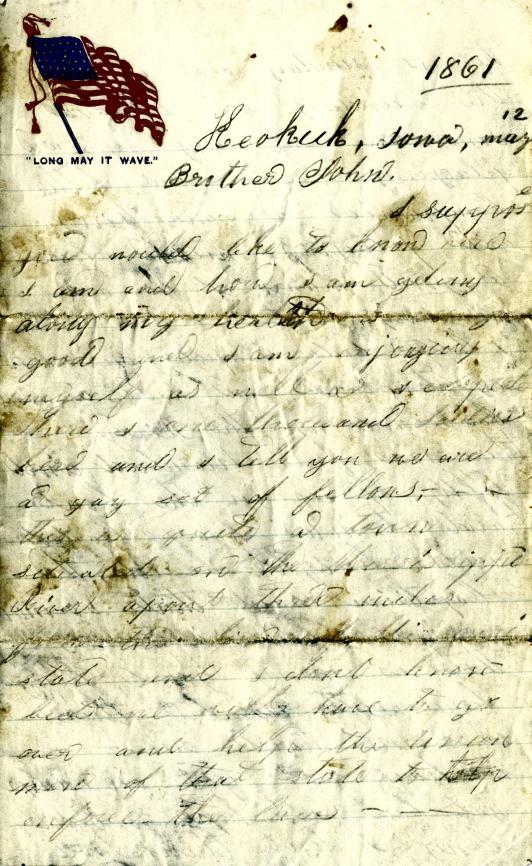 1861
"LONG MAY IT WAVE."
Keokuk, Iowa, may 12
Brother John.
I suppos
you would like to know how
I am and how I am geting
along my health is
good and I am injoying
myself as well as I expected
there is one thousand
here and I tell you we are
a gay set of fellows,
this is quite a town
situated on the Mississippi
River apout three miles
from the
state and I dont know
but we will have to go
over and help the union
men of that state to help
enforce the laws